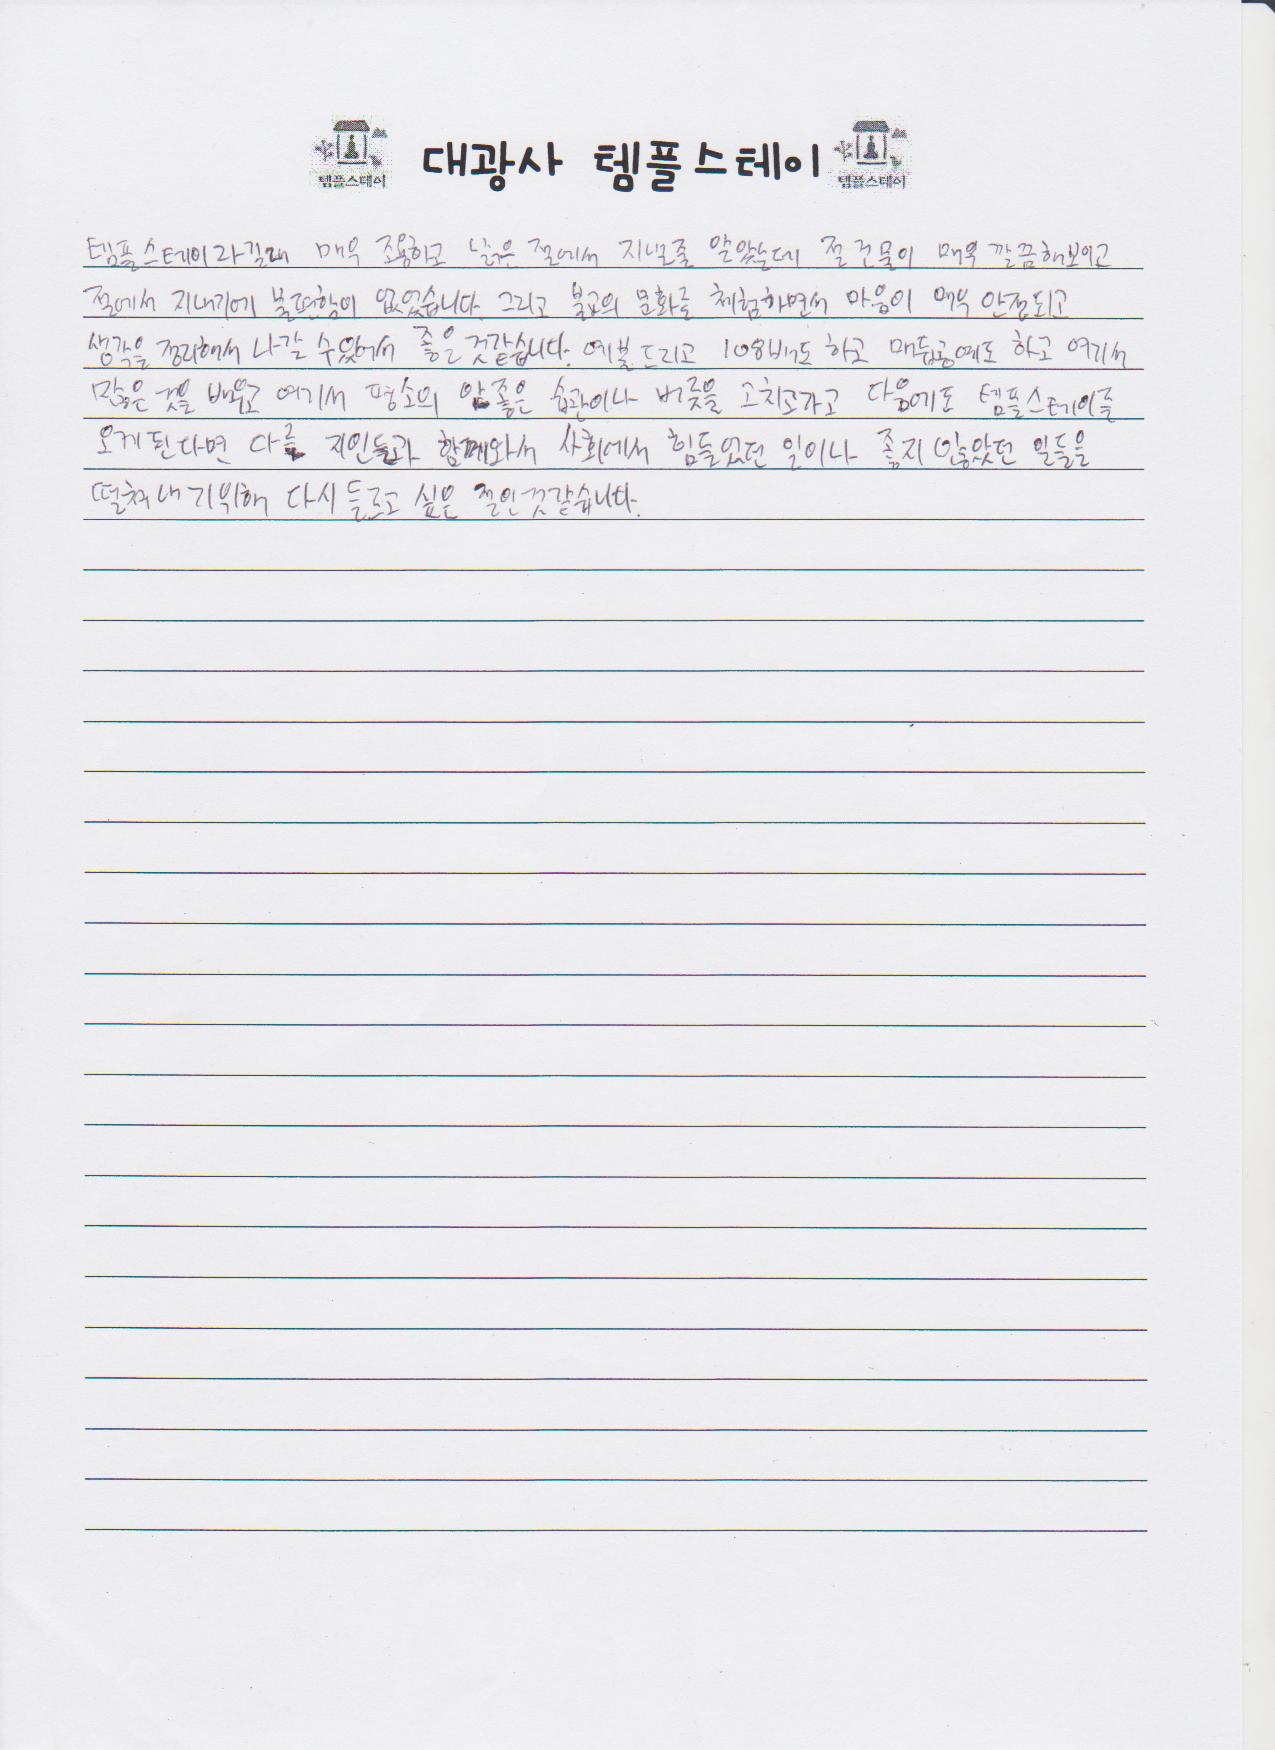 템플스테이 대광사 템플스테이 템플스테이
템플스테이라길래 매우 조용하고 낡은 절에서 지낼줄 알았는데 절 건물이 매우 깔끔해보이고
절에서 지내기에 불편함이 없었습니다. 그리고 불교의 문화를 체험하면서 마음이 매우 안정되고
생각을 정리해서 나갈 수있어서 좋은 것같습니다. 예불드리고 108배도 하고 매듭공예도 하고 여기서
많은 것을 배우고 여기서 평소의 안좋은 습관이나 버릇을 고치고가고 다음에도 템플스테이를
오게 된다면 다른 지인들과 함께와서 사회에서 힘들었던 일이나 좋지 않았던 일들을
떨쳐내기위해 다시 들르고 싶은 절인것같습니다.